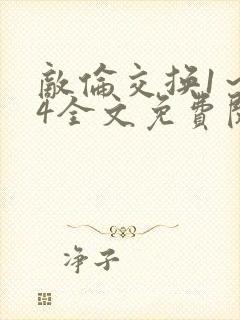 敵倫交换1～
4全文免費閱
净子